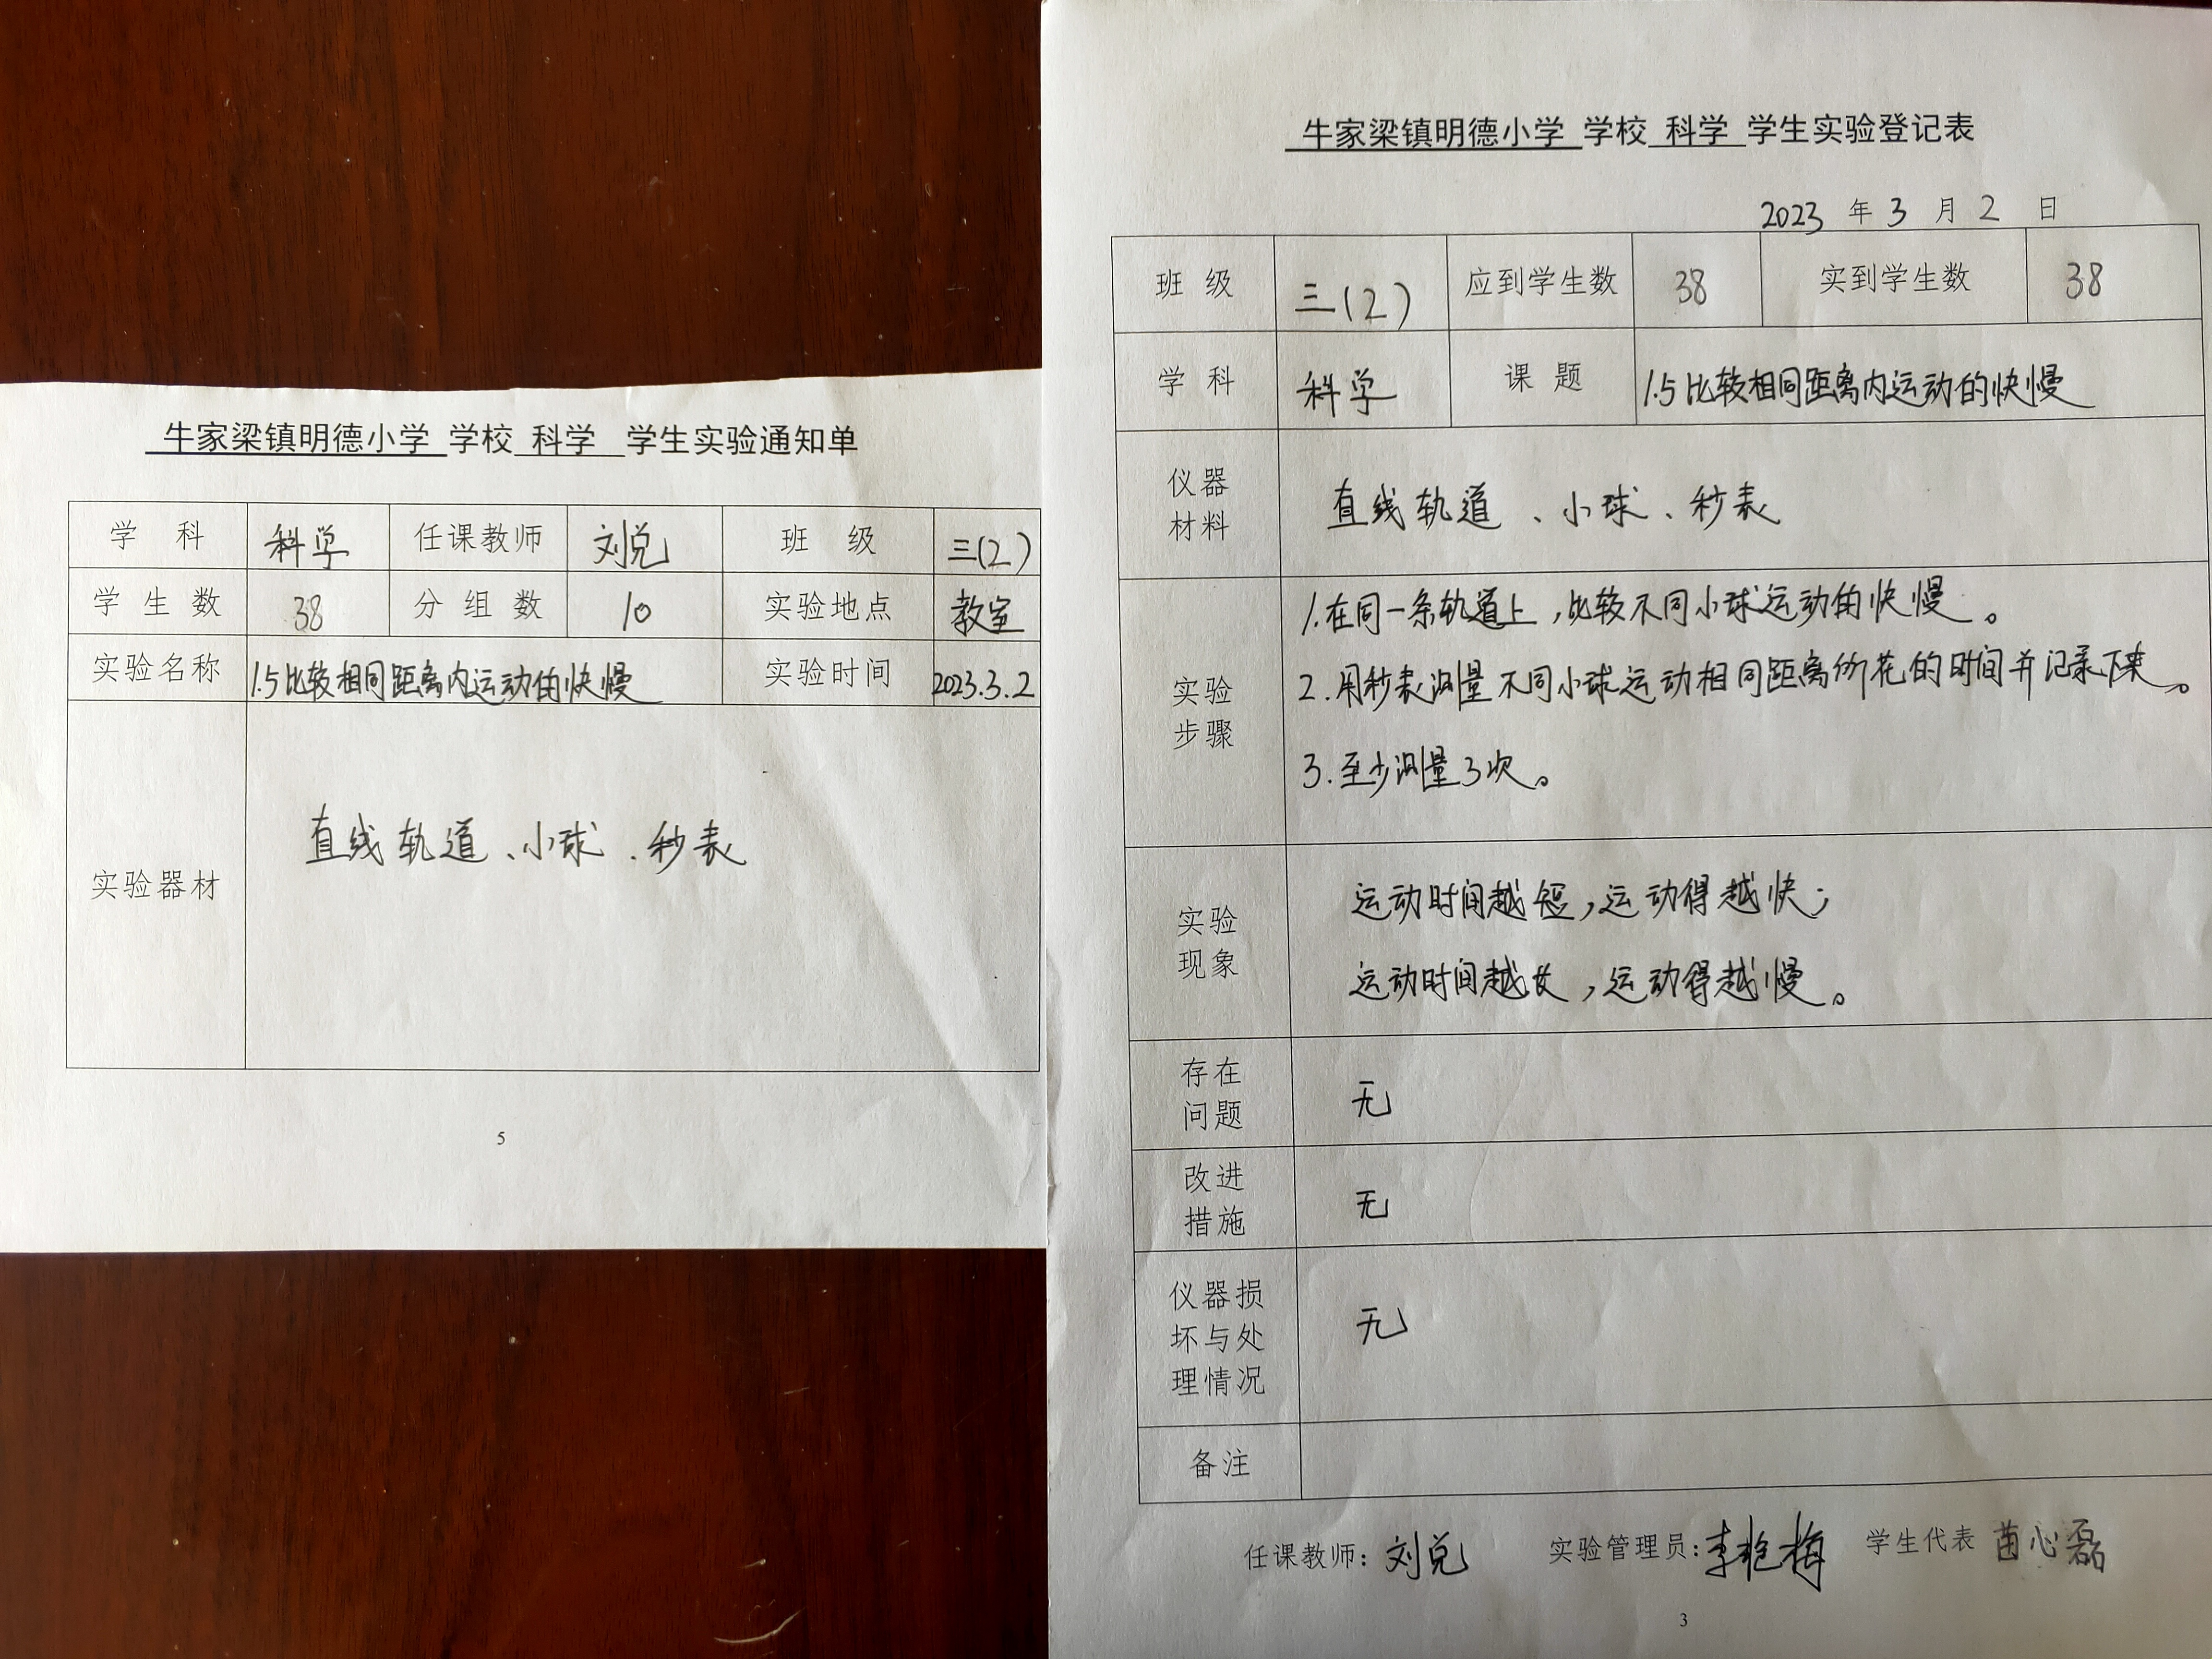 牛家梁镇明德小学 学校 科学 学生实验通知单
学 科 科学 任课教师 刘兑 班 级 三(2)
学 生 数 38 分 组 数 10 实验地点 教室
实验名称 1.5比较相同距离内运动的快慢 实验时间 2023.3.2
实验器材 直线轨道、小球、秒表
5
牛家梁镇明德小学 学校 科学 学生实验登记表
2023 年 3 月 2 日
班 级 三(2) 应到学生数 38 实到学生数 38
学 科 科学 课 题 1.5比较相同距离内运动的快慢
仪器
材料
直线轨道、小球、秒表
实验
步骤
1.在同一条轨道上,比较不同小球运动的快慢。
2.用秒表测量不同小球运动相同距离所花的时间并记录下来。
3.至少测量3次。
实验
现象
运动时间越短,运动得越快;
运动时间越长,运动得越慢。
存在
问题
无
改进
措施
无
仪器损
坏与处
理情况
无
备注
任课教师:刘兑 实验管理员:李艳梅 学生代表 苗心磊
3